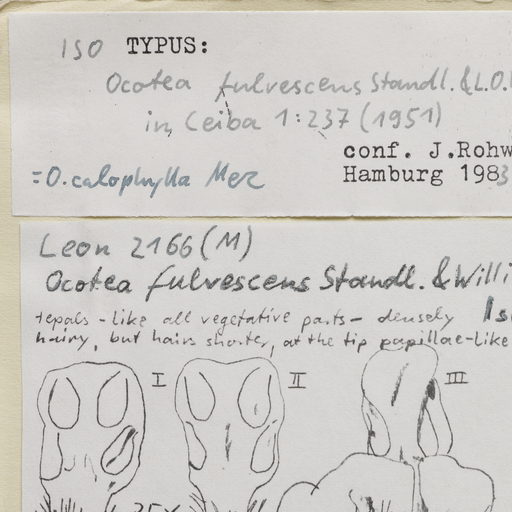 ISO TYPUS:
Ocotea fulvescens Standl. & L.O.
in Ceiba 1:237 (1951)
conf. J.Rohw
= O. calophylla Mez Hamburg 1983
Leon 2166 (M)
Ocotea fulvescens Standl. & Willi
tepals - like all vegetative parts - densely Is
hairy, but hairs shorter, at the tip papillae-like
I II III
35x